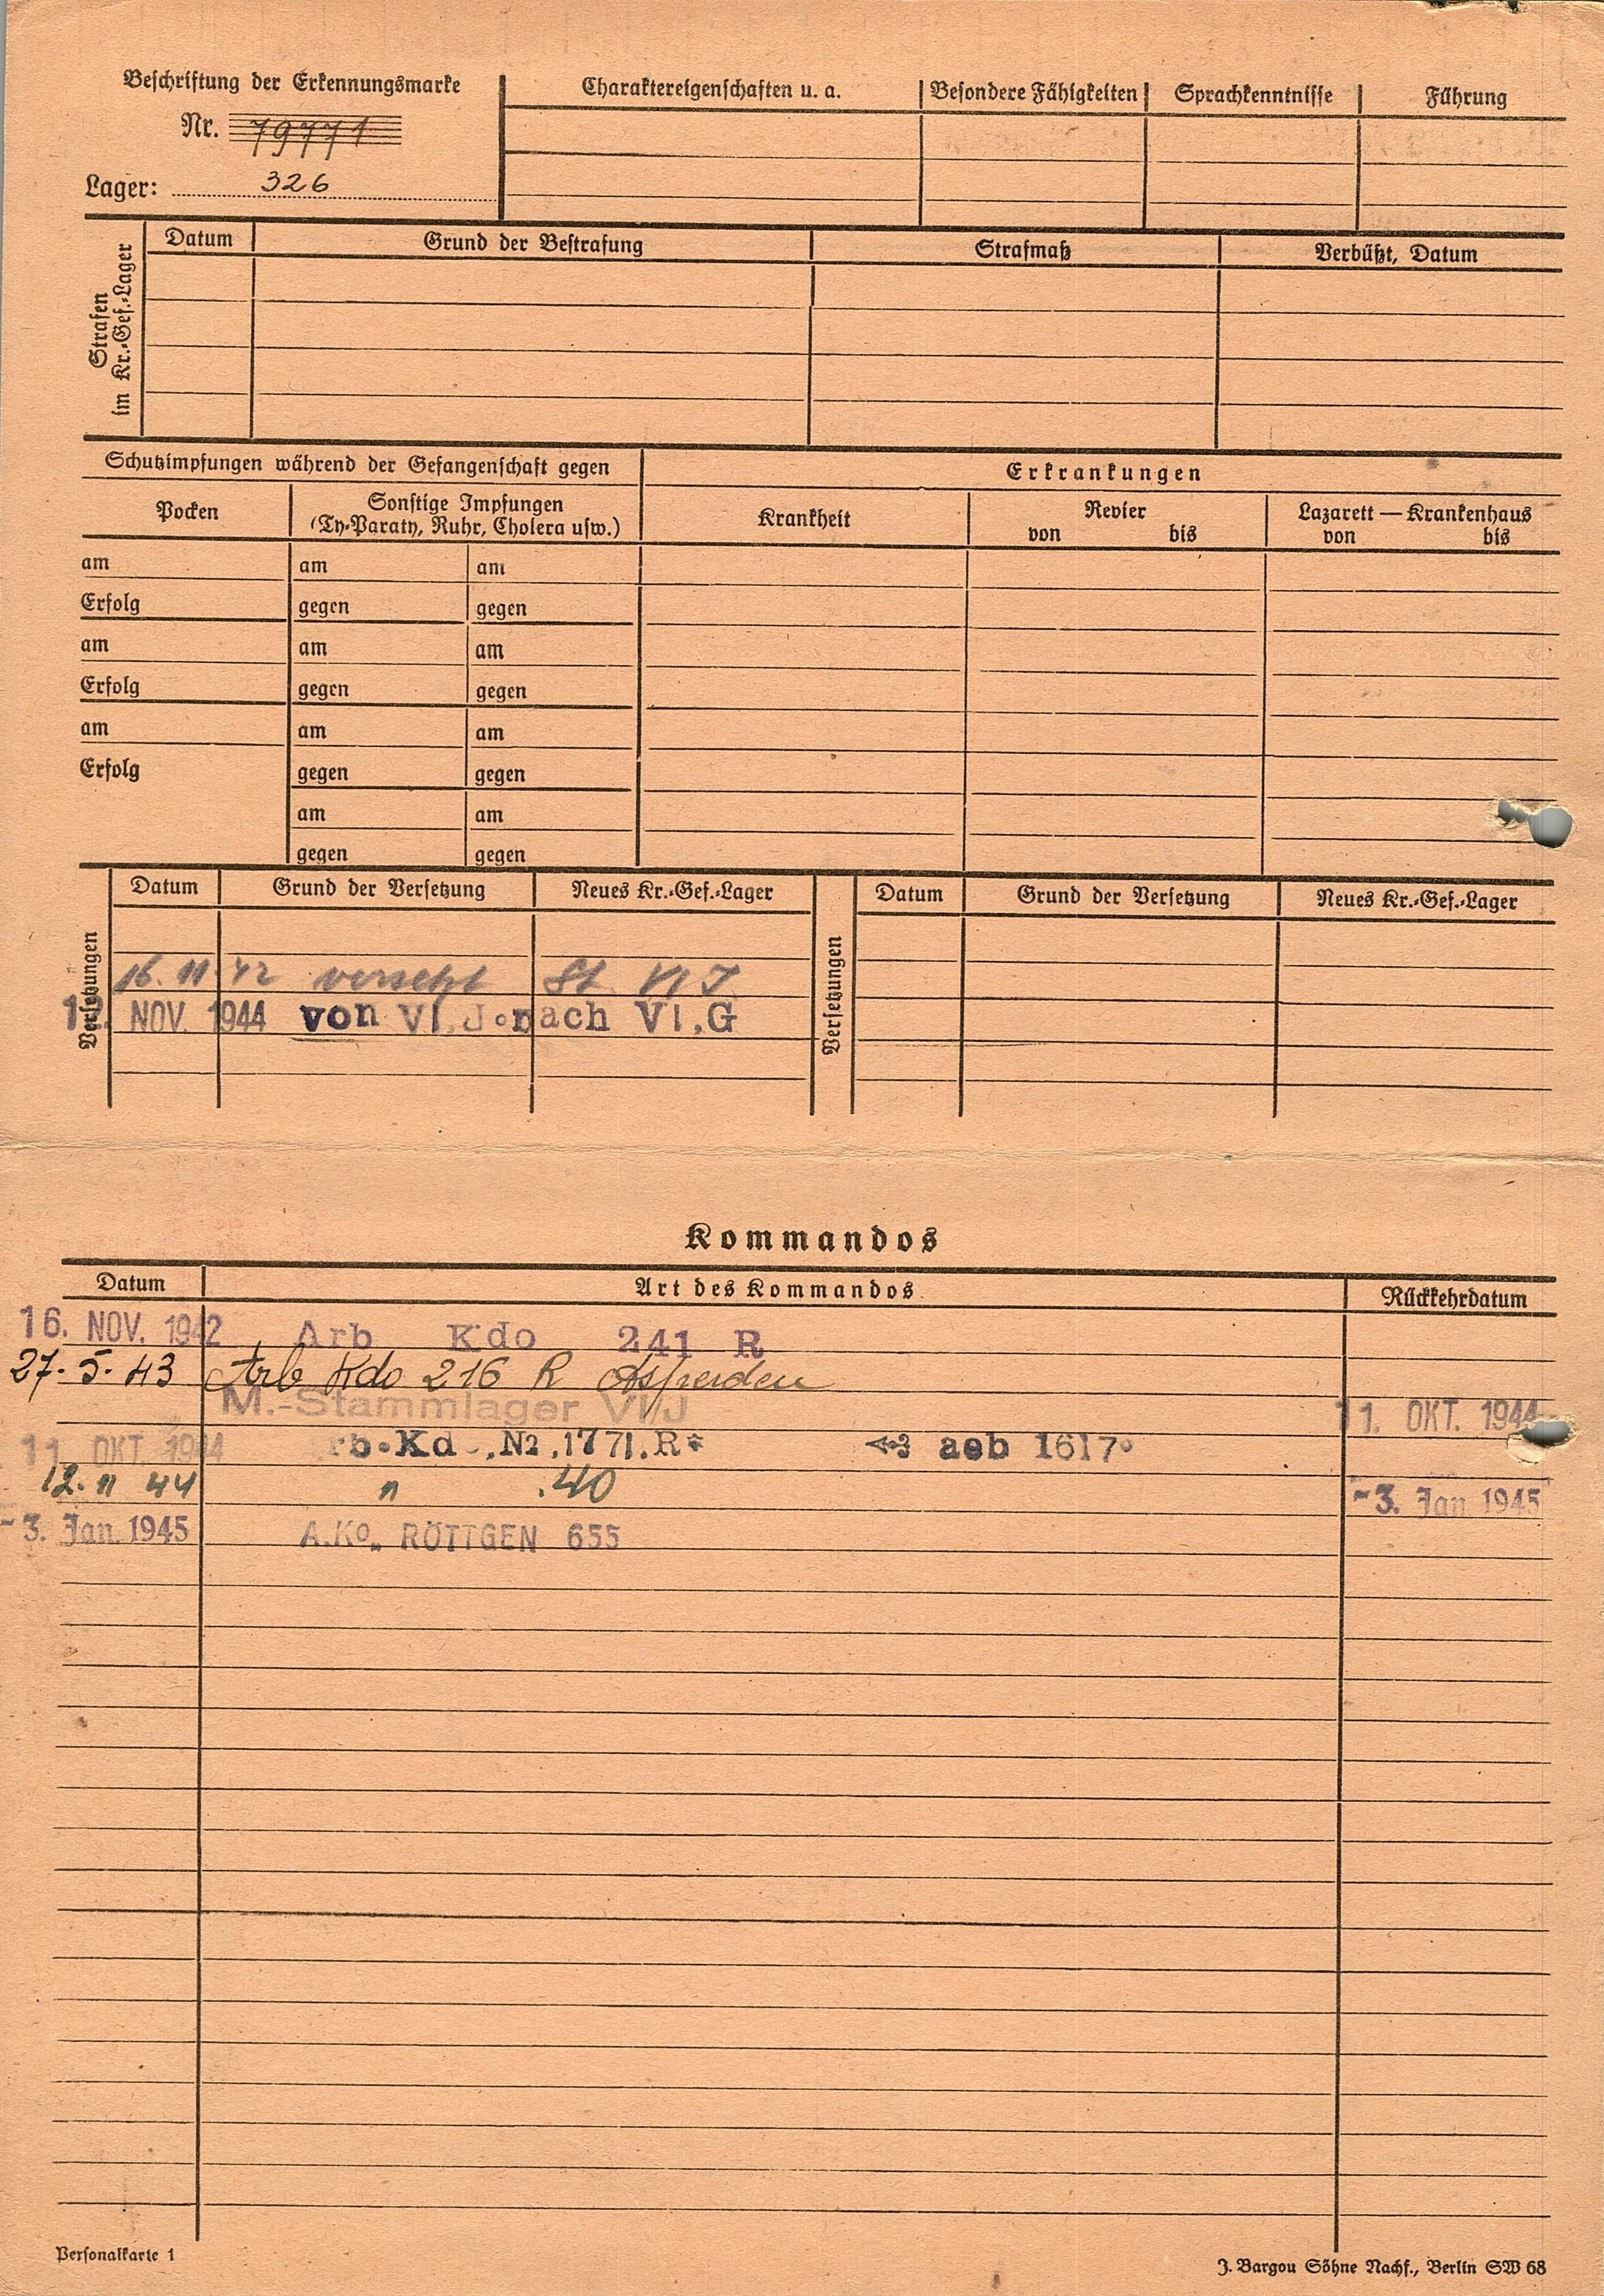 Beschriftung der Erkennungsmarke
Nr. 79771
Lager: 326
Charaktereigenschaften u. a.
Besondere Fähigkeiten
Sprachkenntnisse
Führung
Strafen
im Kr.-Gef.-Lager
Datum
Grund der Bestrafung
Strafmaß
Verbüßt, Datum
Schutzimpfungen während der Gefangenschaft gegen
Erkrankungen
Pocken
Sonstige Impfungen
(Ty-Paraty, Ruhr, Cholera usw.)
Krankheit
Revier
von bis
Lazarett — Krankenhaus
von bis
am am am
Erfolg gegen gegen
am am am
Erfolg gegen gegen
am am am
Erfolg gegen gegen
am am
gegen gegen
Versetzungen
Datum Grund der Versetzung Neues Kr.-Gef.-Lager
16. 11. 42 versetzt St. VI J
NOV. 1944 von VI.J. nach VI.G
Versetzungen
Datum Grund der Versetzung Neues Kr.-Gef.-Lager
Kommandos
Datum Art des Kommandos Rückkehrdatum
16. NOV. 1942 Arb Kdo 241 R
27. 5. 43 Arb Kdo 216 R Asperden
M.-Stammlager VI/J 11. OKT. 1944
11. OKT 1944 rb.Kd .N2.1771.R* aeb 1617
12. 11 44 " .40 -3. Jan 1945
-3. Jan. 1945 A.Ko. RÖTTGEN 655
Personalkarte 1
J. Bargou Söhne Nachf., Berlin SW 68